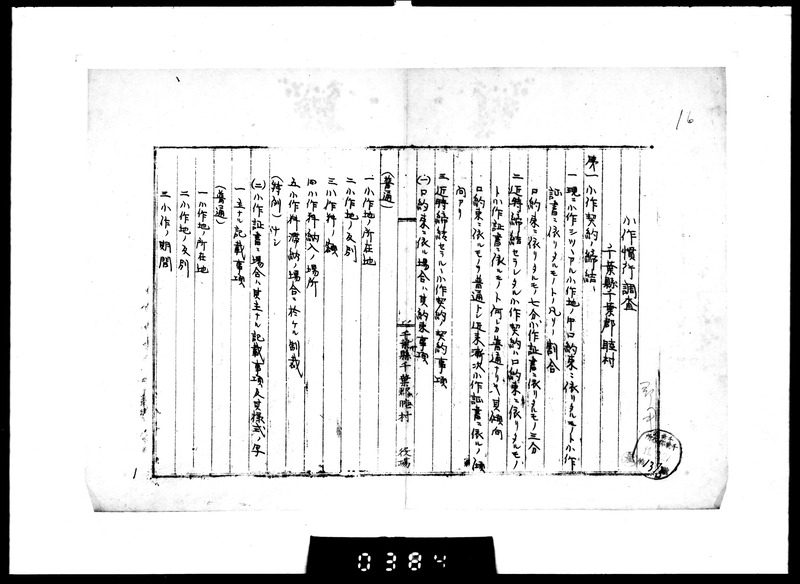 16
小作慣行調査
千葉縣千葉郡睦村
第一 小作契約ノ締結
一 現ニ小作シツヽアル小作地ノ中口約束ニ依リタルモノト小作
証書ニ依リタルモノトノ凡ソノ割合
口約束ニ依リタルモノ七分小作証書ニ依リタルモノ三分
二 近時締結セラレタル小作契約ハ口約束ニ依リタルモノ
ト小作証書ニ依ルモノト何レカ普通ナリヤ其傾向
口約束ニ依ルモノヲ普通トシ近来漸次小作証書ニ依ルノ傾
向アリ
三 近時締結セラルヽ小作契約ノ契約事項
(一) 口約束ニ依ル場合ハ其約束事項
千葉縣千葉郡睦村役場
(普通)
一 小作地ノ所在地
二 小作地ノ反別
三 小作料ノ額
四 小作料納入ノ場所
五 小作料滞納ノ場合ニ於ケル制裁
(特別) ナシ
(二) 小作証書ニ場合ハ其主ナル記載事項及其様式ノ写
一 主ナル記載事項
(普通)
一 小作地ノ所在地
二 小作地ノ反別
三 小作ノ期間
1
0384